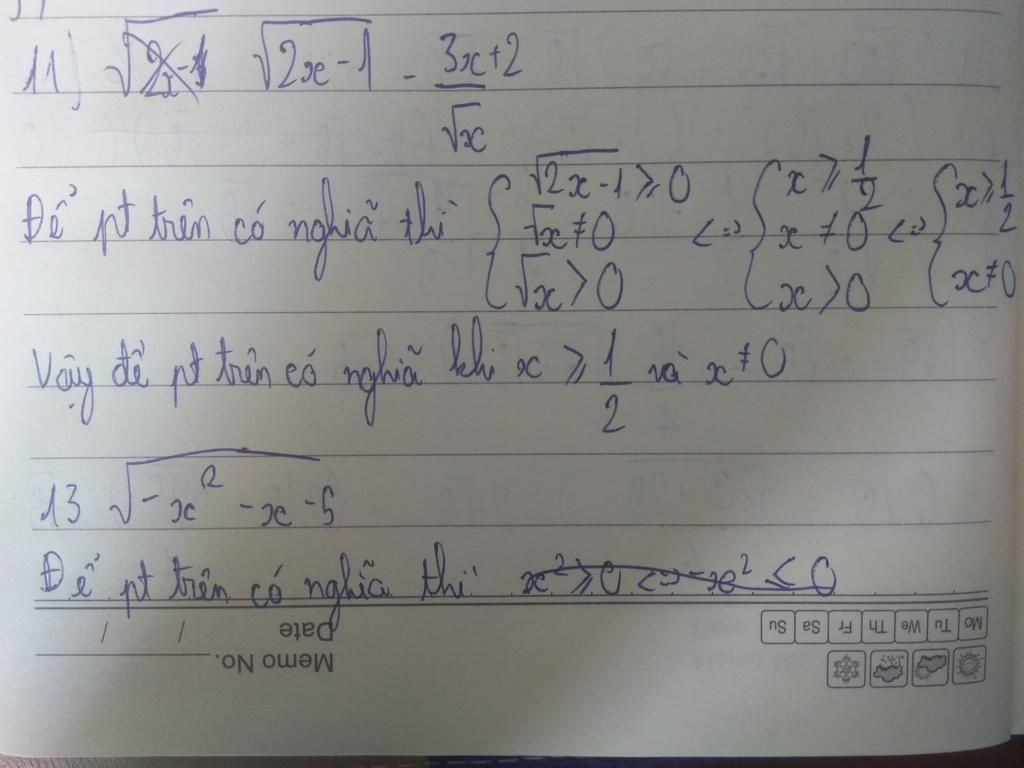 11) √(2x-1) √(2x-1) - (3x+2)/√x
Để pt trên có nghiã thì { √(2x-1) ≥ 0 ; √x ≠ 0 ; √x > 0 <=> { x ≥ 1/2 ; x ≠ 0 ; x > 0 <=> { x ≥ 1/2 ; x ≠ 0
Vậy để pt trên có nghiã khi x ≥ 1/2 và x ≠ 0
13 √(-x² - x - 5)
Để pt trên có nghiã thì x² ≥ 0 <=> -x² ≤ 0
Mo Tu We Th Fr Sa Su
Memo No.
Date / /